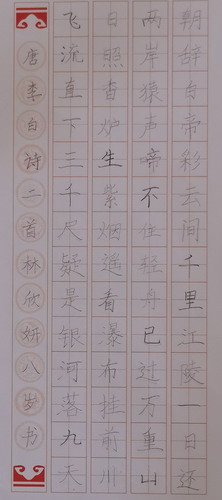 朝辞白帝彩云间千里江陵一日还
两岸猿声啼不住轻舟已过万重山
日照香炉生紫烟遥看瀑布挂前川
飞流直下三千尺疑是银河落九天
唐李白诗二首林欣妍八岁书